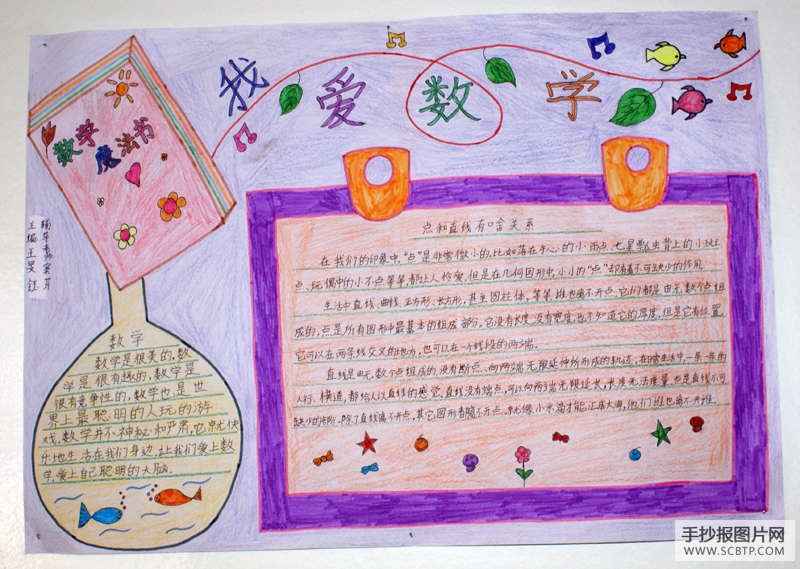 我爱数学
数学
魔法书
数学
数学是很美的,数
学是很有趣的,数学是
很有竞争性的,数学也是世
界上最聪明的人玩的游
戏,数学并不神秘和严肃,它就快
乐地生活在我们身边,让我们爱上数
学,爱上自己聪明的大脑。
点和直线有啥关系
在我们的印象中,“点”是非常微小的,比如落在手心的小雨点、七星瓢虫背上的小斑
点、玩偶中的小不点等等,都让人怜爱,但是在几何图形中,小小的“点”却有着不可缺少的作用。
生活中直线、曲线、正方形、长方形,甚至圆柱体,等等,谁也离不开点,它们都是由无数个点组
成的,点是所有图形中最基本的组成部分。它没有长度,没有宽度,也不知道它的厚度,但是它有位置,
它可以在两条线交叉的地方,也可以在一个线段的两端。
直线是由无数个点组成的,没有断点、向两端无限延伸所形成的轨迹,在日常生活中,一条一条的
人行横道,都给人以直线的感觉,直线没有端点,可以向两端无限延长,长度无法度量,点是直线不可
缺少的部分,除了直线离不开点,其它图形离不开点,就像小水滴才能汇成大海,他们谁也离不开谁。
手抄报图片网
WWW.SCBTP.COM